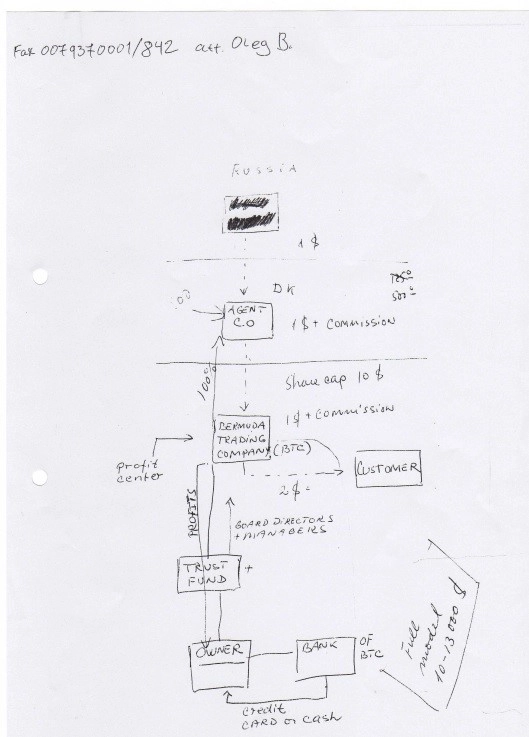 Fax 0079370001/842 att. Oleg B.
RUSSIA
1 $
DK
500
AGENT
C.O
1$ + COMMISSION
100%
Share cap 10 $
1$ + COMMISSION
BERMUDA
TRADING
COMPANY (BTC)
profit
center
CUSTOMER
2$
PROFITS
BOARD DIRECTORS
+ MANAGERS
TRUST
FUND
+
OWNER
BANK
OF
BTC
Full
model
10-13000 $
credit
CARD or cash